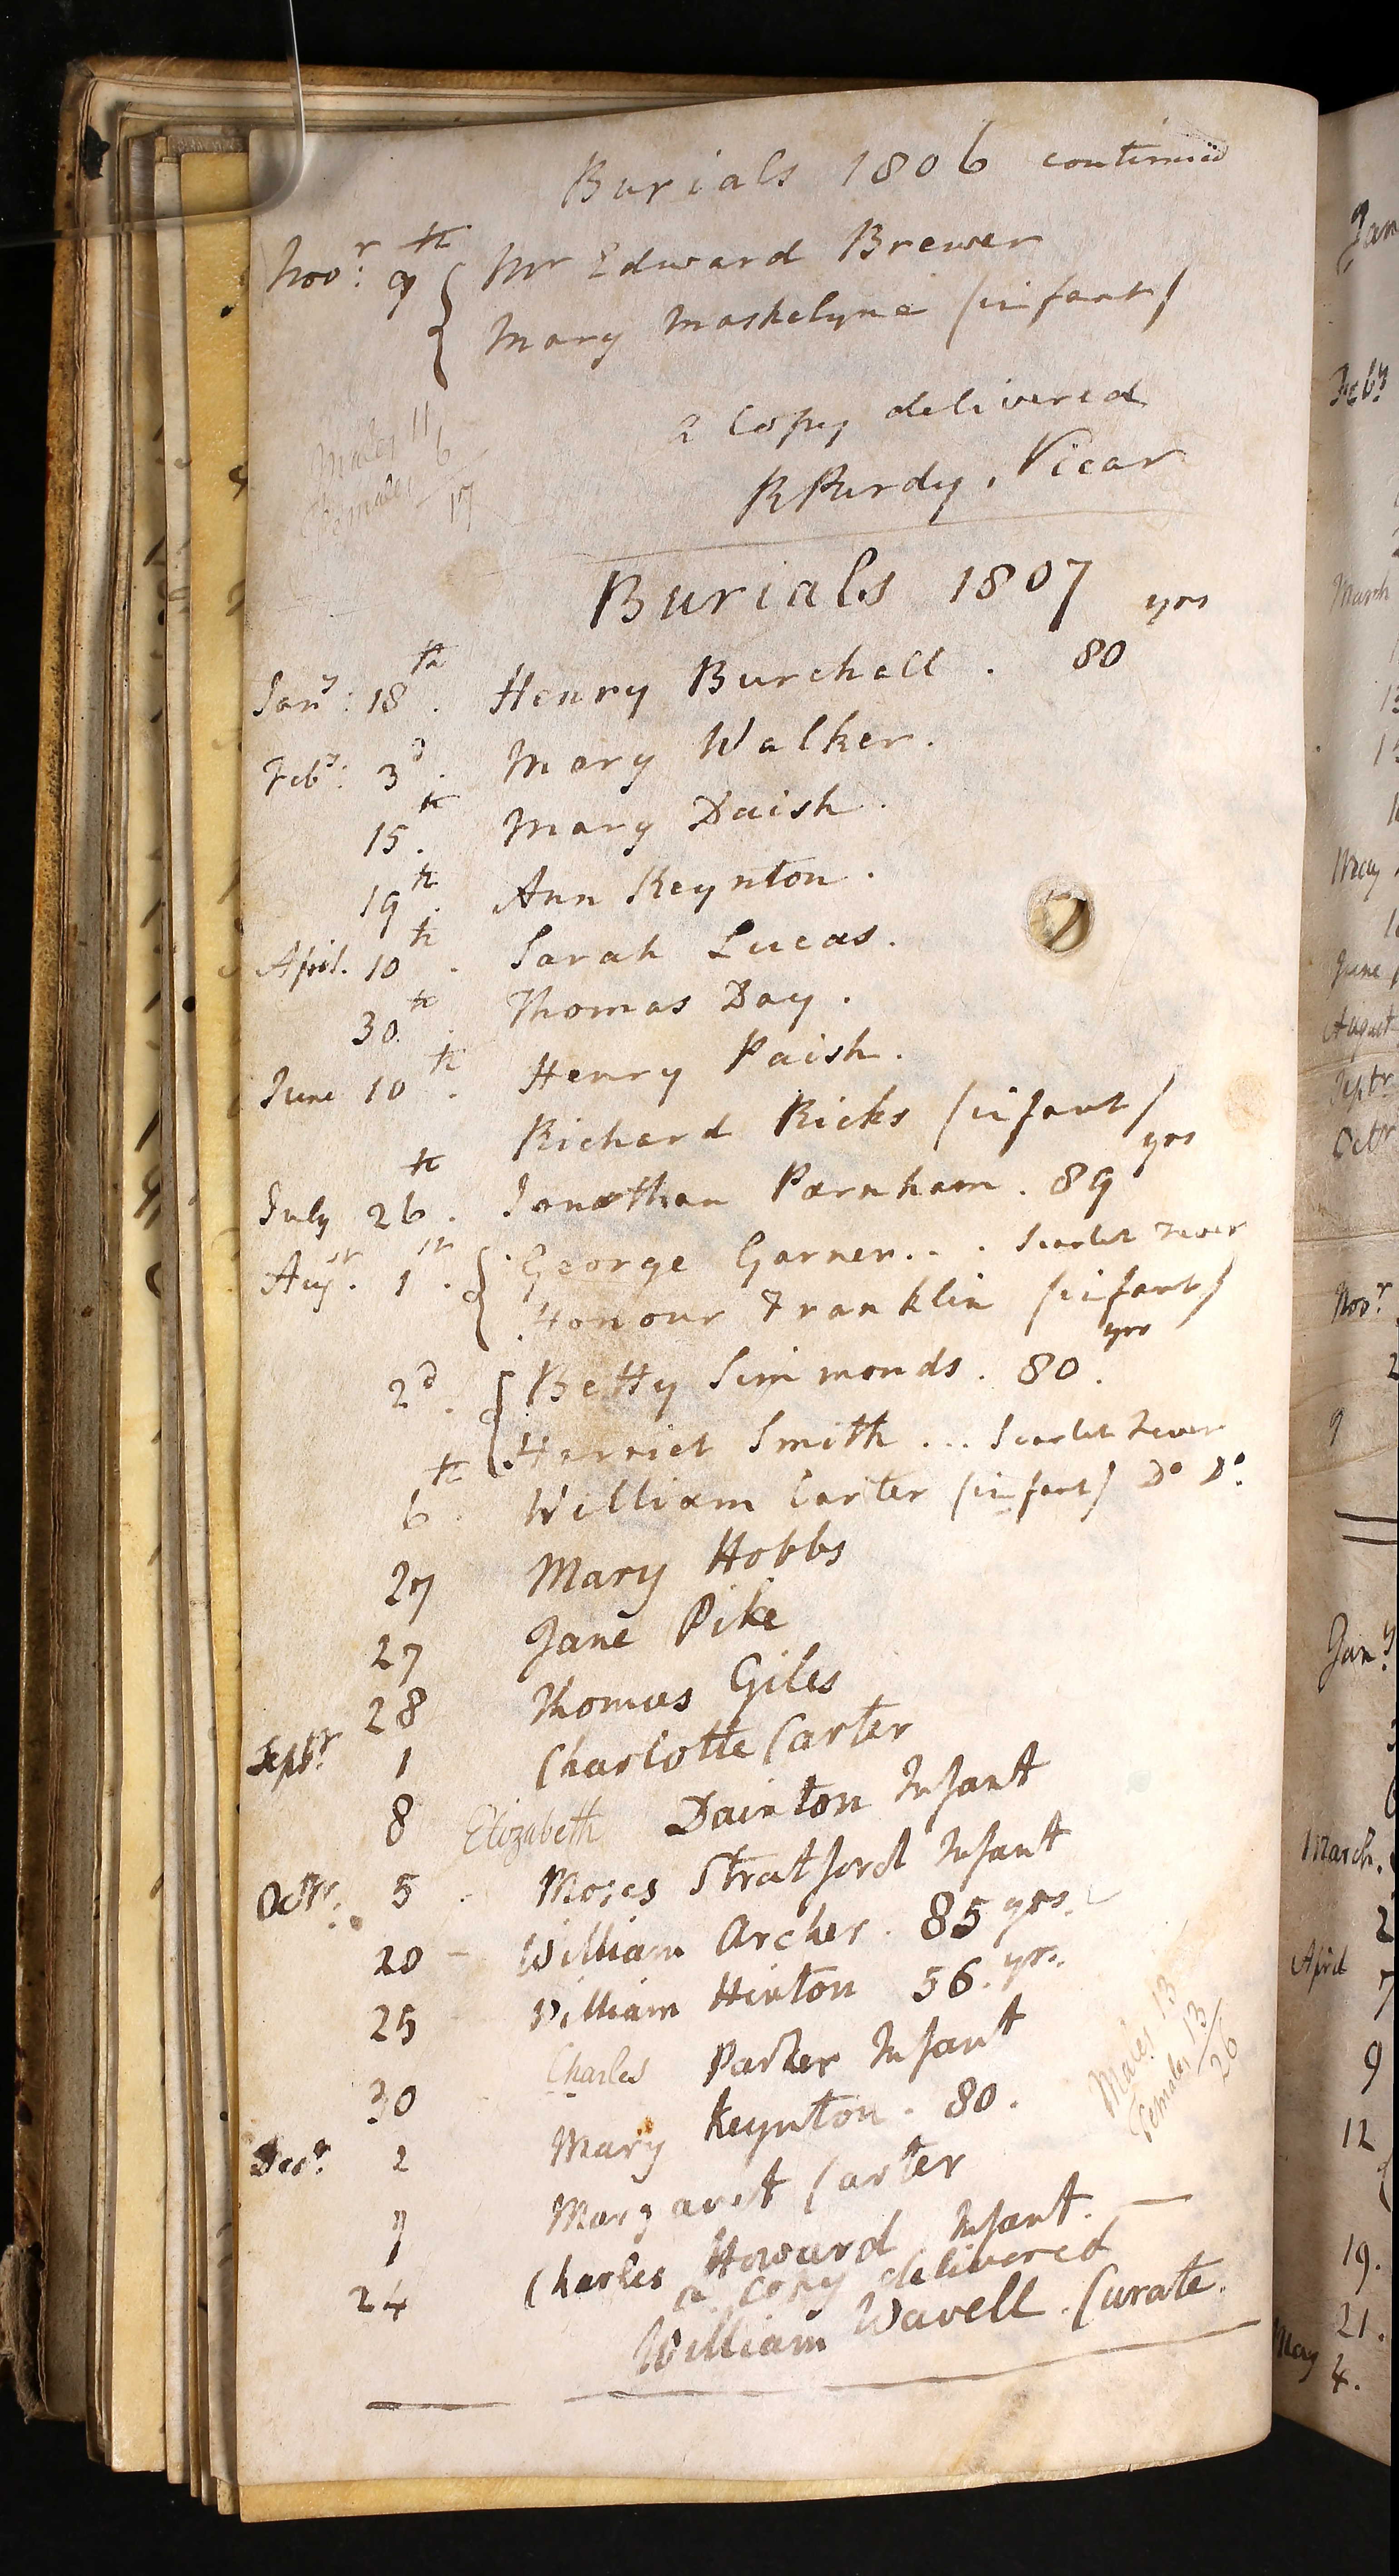 Burials 1806 continued
Novr: 9th { Mr Edward Brewer
Mary Maskelyne (infant)
a Copy delivered
R Purdy, Vicar
Males 11
Females 6
17
Burials 1807
yrs
Jany: 18th. Henry Burchall . 80
Feby: 3d. Mary Walker.
15th. Mary Daish.
19th. Ann Keynton.
April. 10th. Sarah Lucas.
30th. Thomas Day.
June 10th. Henry Paish.
Richard Ricks (infant)
July 26th. Jonathan Parnham. 89 yrs
Augst. 1st. { George Garner... Scarlet Fever
Honour Franklin (infant)
2d. { Betty Simmonds. 80 yrs.
Harriet Smith ... Scarlet Fever
6th William Carter (infant) Do Do.
27 Mary Hobbs
27 Jane Pike
28 Thomas Giles
Septbr 1 Charlotte Carter
8 Elizabeth Dainton Infant
Octbr. 5 - Moses Stratford Infant
20 - William Archer. 85 yrs.
25 William Hinton 56. yrs.
30 Charles Parker Infant
Decr. 2 Mary Keynton. 80.
7 Margaret Carter
24 Charles Howard Infant. —
a Copy delivered
William Wavell. Curate.
Males 13
Females 13
26
Jan
Feby
March
May
June
August
Septr
Octr
Novr
9
Jany
March.
2
April 7
9
12
19.
21.
May 4.